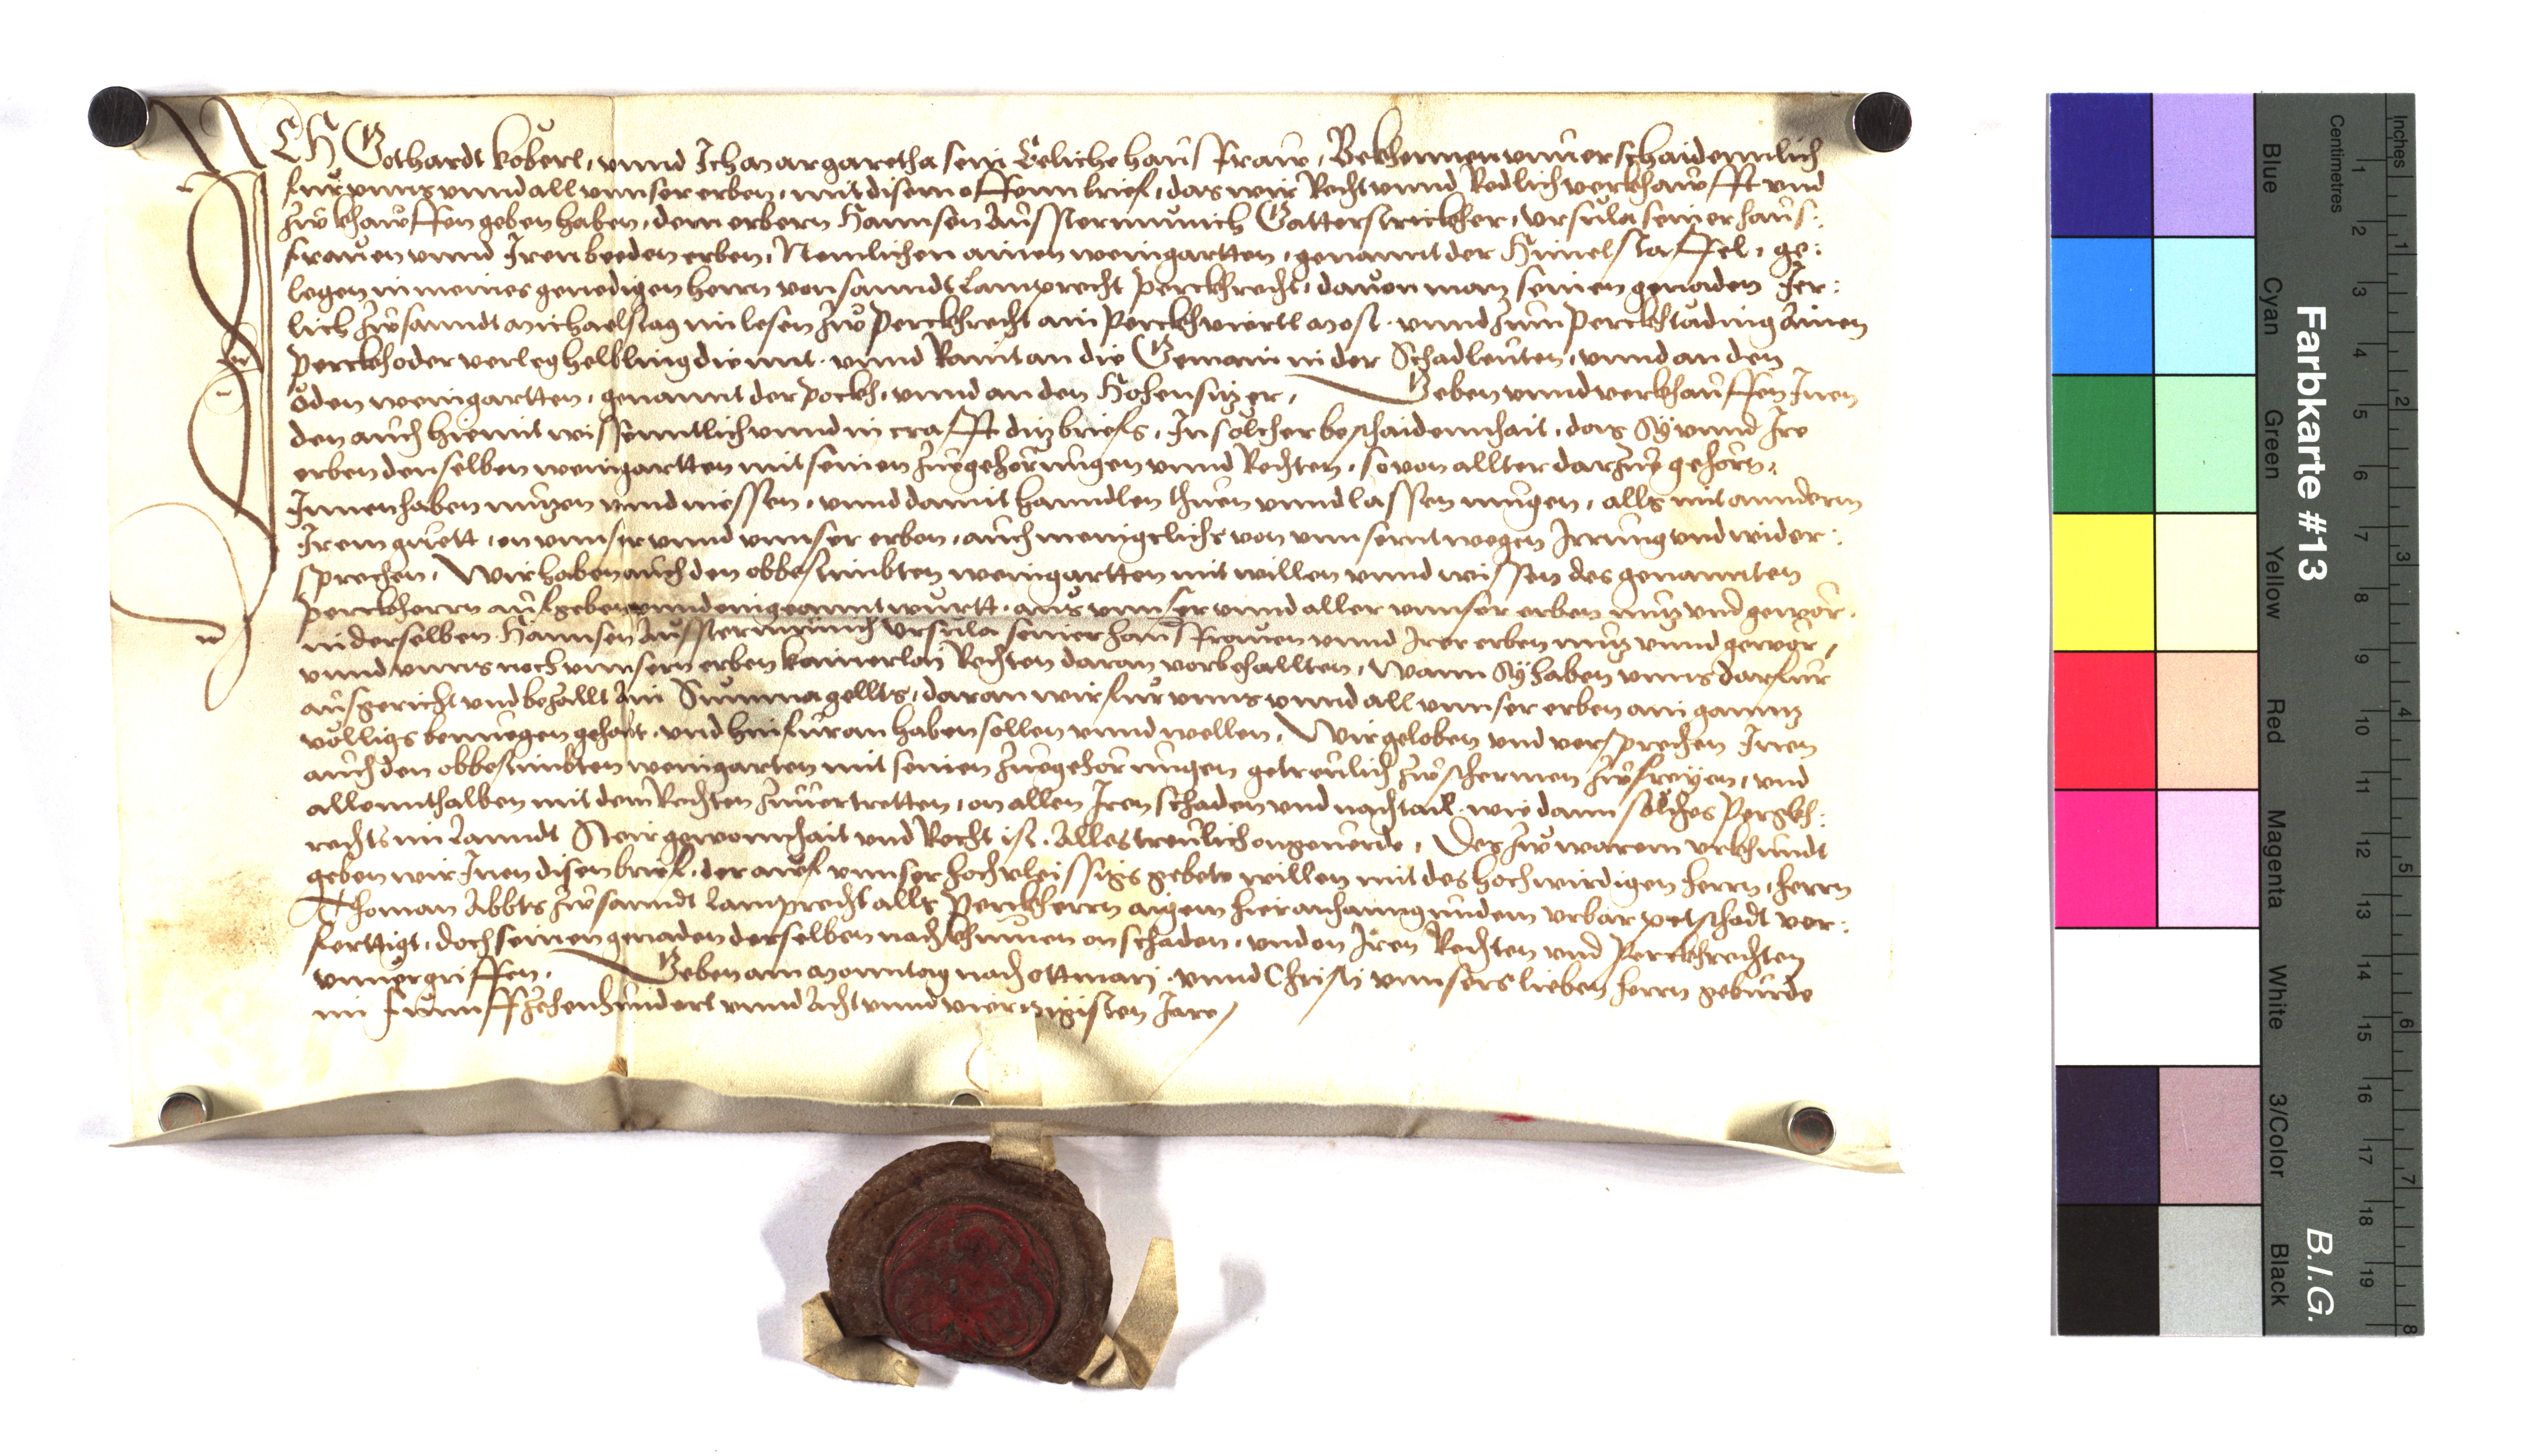 ICH Gothardt Köberl, vnnd Ich Margaretha sein Eeliche hausfraw, Bekhennen vnnuerschaidennlich
fur vnns vnnd all vnnser erben, mit disem offenn brief, das wir Recht vnnd Redlich verkhaufft vnd
zw khauffen geben haben, dem erbern Hannsen Ausstermünich Gatterstrickher, Vrsula seiner haus:
frauen vnnd Iren beeden erben, Nemlichen ainen weingartten, genannt der Himelstaffel, ge:
legen in meines genedigen herrn von sanndt Lamprecht Perckhrecht, dauon man seinen genaden Jer:
lich zw sanndt Michaelstag im lesen zw Perckhrecht ain Perckhviertl Most, vnnd zum Perckhtäding Ainen
Perckh oder verleg helbling diennt, vnnd Raint an die Gemain in der Schadleuten, vnnd an den
öden weingartten, genannt der Pockh, vnnd an den Hohensitzer, Geben vnnd verkhauffen Inen
den auch hiemit wissenntlich vnnd in crafft ditz briefs, In solcher beschaidenhait, das Sy vnnd Ire
erben denselben weingartten mit seinen zuegehorungen vnnd Rechten, so von allter darzue gehörn,
Innenhaben nutzen vnnd niessen, vnnd damit hanndlen thuen vnnd lassen mugen, alls mit annderm
Irem guett, on vnnser vnnd vnnser erben, auch menigclichs von vnnsernt wegen Irrung vnd wider:
sprechen, Wir haben auch den obbestimbten weingartten mit willen vnnd wissen des genannten
Perckherrn aufgeben vnnd eingeanntwurtt, aus vnnser vnnd aller vnnser erben nutz vnd gewör,
in derselben Hannsen Ausstermünich Vrsula seiner hausfrauen vnnd Irer erben nutz vnnd gewör,
vnnd vnns noch vnnsern erben kainerlay Rechten daran vorbehallten, Wann Sy haben vnns darfur
ausgericht vnd bezallt Ain Summa gellts, daran wir fur vnns vnnd all vnnser erben ain ganntz
völligs benuegen gehabt, vnd hinfuran haben sollen vnnd wellen, Wir geloben vnd versprechen Inen
auch den obbestimbten weingarten mit seinen zuegehorungen getreulich zw schermen zw freyen, vnd
allennthalben mit dem Rechten zuuertretten, on allen Iren schaden vnd nachtail, wie dann solches Pergkh:
rechts im Lanndt Steir gewonhait vnd Recht ist, Alles treulich ongeuerde, Des zw warem vrkhundt
geben wir Inen disen brief, der auf vnnser hochvleissigs gebete willen mit des hochwirdigen herrn, herrn
Thoman Abbts zw sanndt Lamprecht alls Perckherrn aigem hieranhanngundem vrbar petschadt ver:
ferttigt, doch seinen genaden derselben nachkhumen on schaden, vnd on Iren Rechten vnd Perckhrechten
vnuergriffen, Geben am Monntag nach Ottmarj, vnnd Christi vnnsers lieben herrn geburde
im funnffzehenhundert vnnd Acht vnnd viertzigisten Jare
Farbkarte #13
B.I.G.
Blue
Cyan
Green
Yellow
Red
Magenta
White
3/Color
Black
Centimetres
Inches
1 2 3 4 5 6 7 8 9 10 11 12 13 14 15 16 17 18 19
1 2 3 4 5 6 7 8